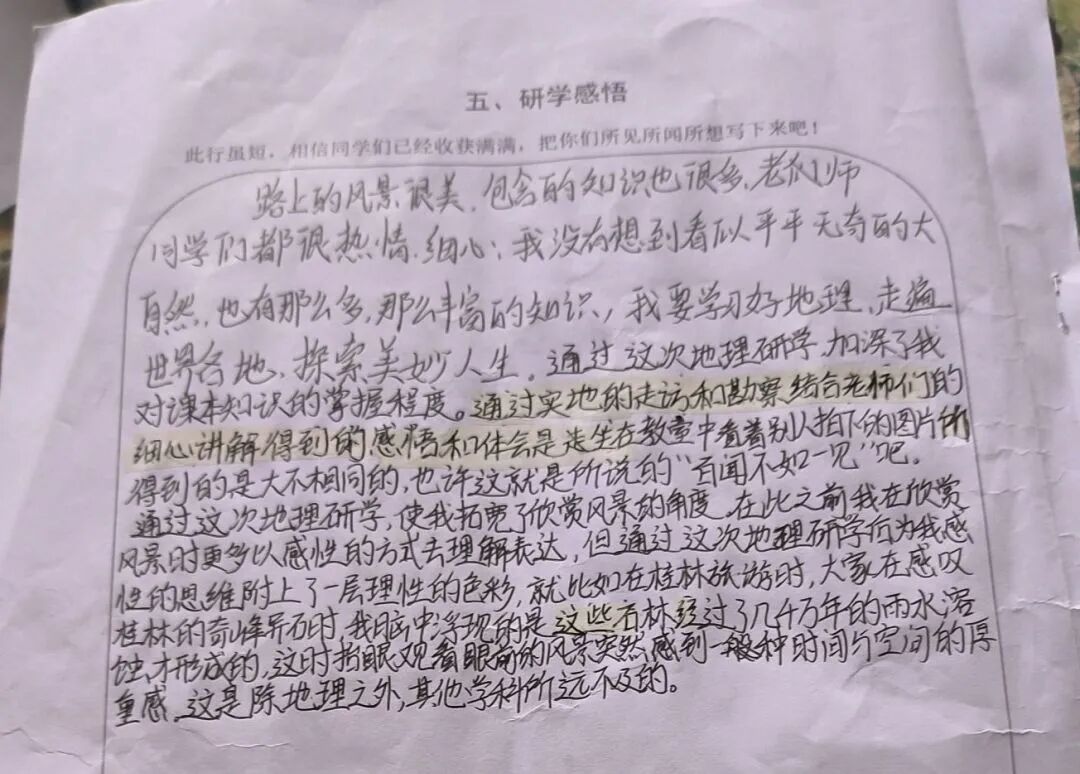 五、研学感悟
此行虽短，相信同学们已经收获满满，把你们所见所闻所想写下来吧！
路上的风景很美，包含的知识也很多，老们师
同学们都很热情、细心；我没有想到看似平平无奇的大
自然，也有那么多，那么丰富的知识，我要学习好地理，走遍
世界各地，探索美妙人生。通过这次地理研学，加深了我
对课本知识的掌握程度。通过实地的走访和勘察结合老师们的
细心讲解得到的感悟和体会是连坐在教室中看着别人拍下的图片所
得到的是大不相同的，也许这就是所说的“百闻不如一见”吧。
通过这次地理研学，使我拓宽了欣赏风景的角度，在此之前我在欣赏
风景时更多以感性的方式去理解表达，但通过这次地理研学后为我感
性的思维附上了一层理性的色彩，就比如在桂林旅游时，大家在感叹
桂林的奇峰异石时，我脑中浮现的是这些石林经过了几千万年的雨水溶
蚀才形成的，这时抬眼观看眼前的风景突然感到一种时间与空间的厚
重感，这是除地理之外，其他学科所远不及的。